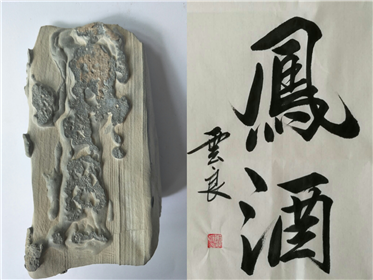 鳳酒
雲良